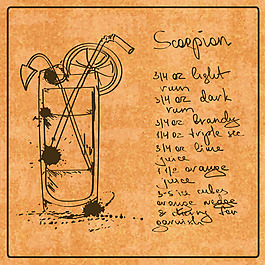 Scorpion
3/4 oz light
rum
3/4 oz dark
rum
3/4 oz brandy
1/4 oz tryple sec
3/4 oz lime
juice
1 1/2 orange
juice
3-5 ice cubes
orange wedge
& cherry for
garnish